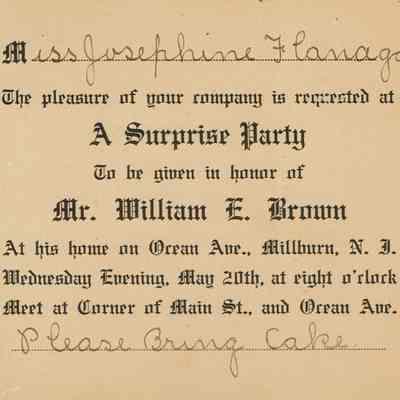 Miss Josephine Flanag
The pleasure of your company is requested at
A Surprise Party
To be given in honor of
Mr. William E. Brown
At his home on Ocean Ave., Millburn, N. J.
Wednesday Evening, May 20th, at eight o'clock
Meet at Corner of Main St., and Ocean Ave.
Please Bring Cake